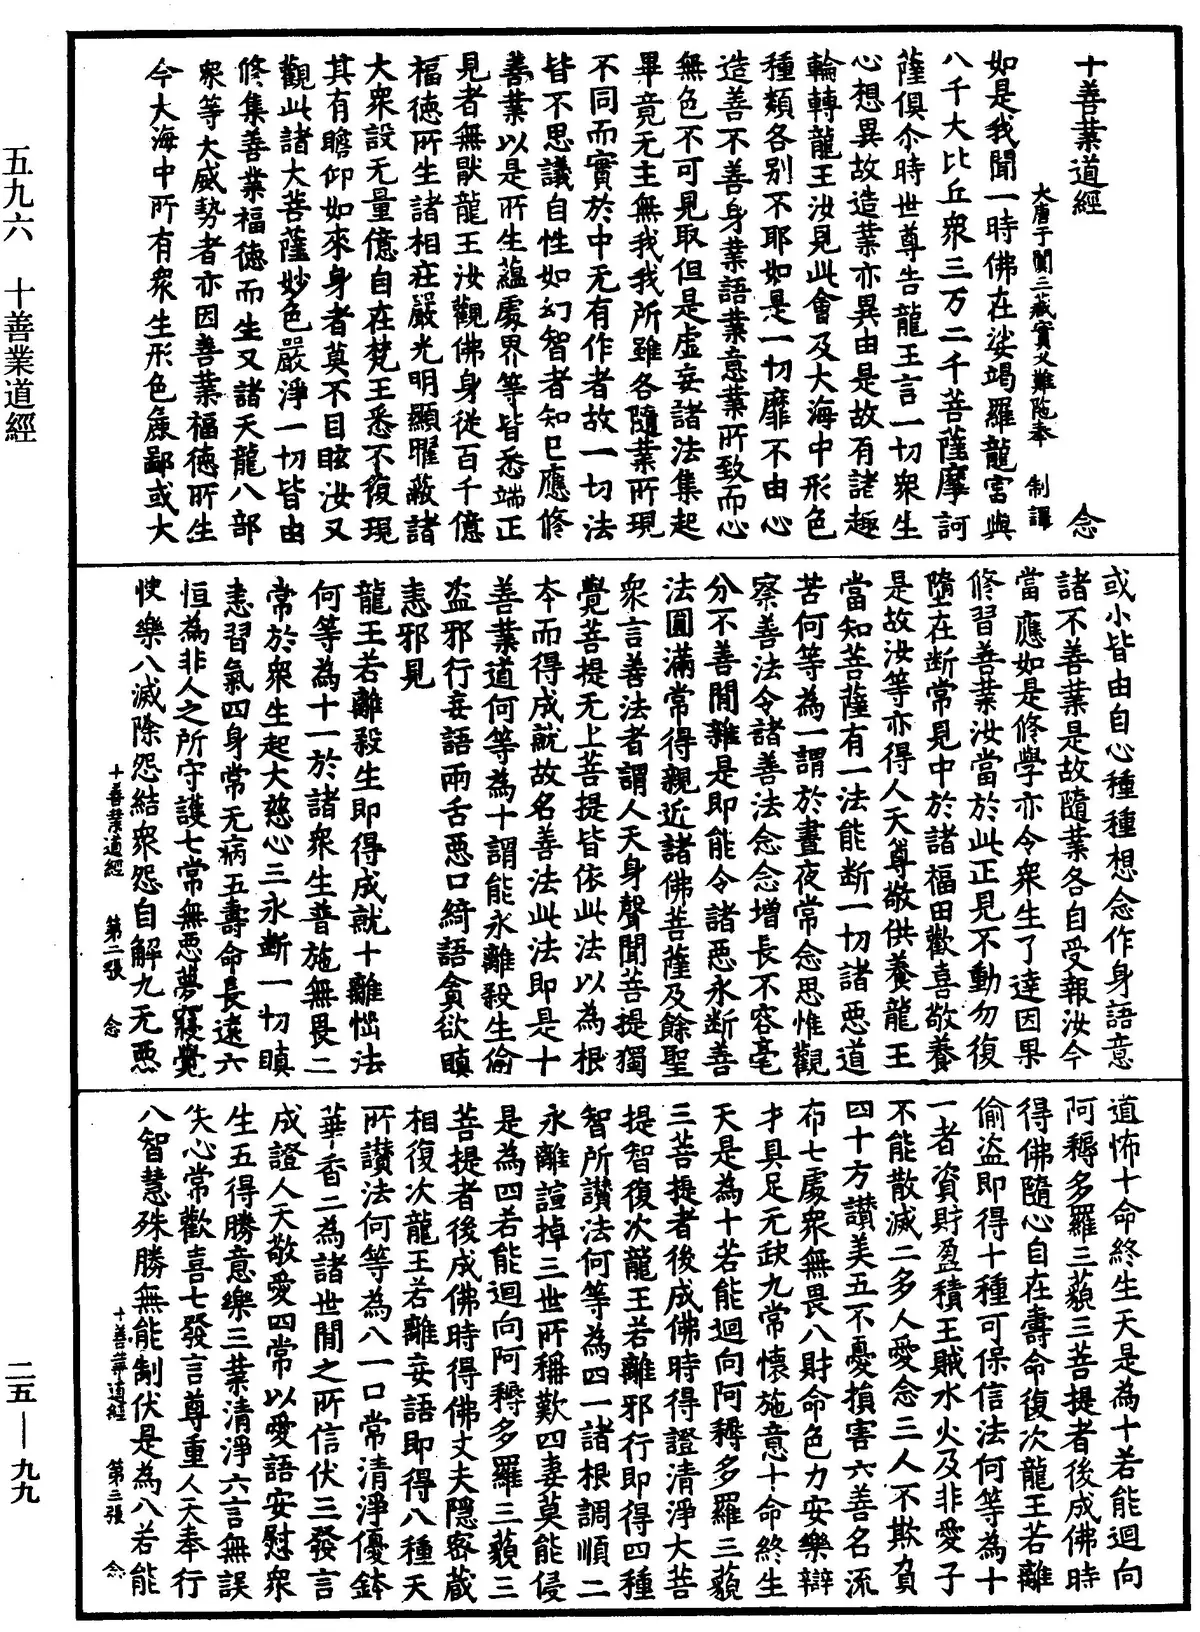 十善業道經 念
大唐于闐三藏實叉難陁奉 制譯
如是我聞一時佛在娑竭羅龍宮與
八千大比丘衆三万二千菩薩摩訶
薩俱尒時世尊告龍王言一切衆生
心想異故造業亦異由是故有諸趣
輪轉龍王汝見此會及大海中形色
種類各別不耶如是一切靡不由心
造善不善身業語業意業所致而心
無色不可見取但是虛妄諸法集起
畢竟无主無我我所雖各隨業所現
不同而實於中无有作者故一切法
皆不思議自性如幻智者知已應修
善業以是所生蘊處界等皆悉端正
見者無猒龍王汝觀佛身從百千億
福德所生諸相莊嚴光明顯曜蔽諸
大衆設无量億自在梵王悉不復現
其有瞻仰如來身者莫不目眩汝又
觀此諸大菩薩妙色嚴淨一切皆由
修集善業福德而生又諸天龍八部
衆等大威勢者亦因善業福德所生
今大海中所有衆生形色麁鄙或大
或小皆由自心種種想念作身語意
諸不善業是故隨業各自受報汝今
當應如是修學亦令衆生了達因果
修習善業汝當於此正見不動勿復
墮在斷常見中於諸福田歡喜敬養
是故汝等亦得人天尊敬供養龍王
當知菩薩有一法能斷一切諸惡道
苦何等為一謂於晝夜常念思惟觀
察善法令諸善法念念增長不容毫
分不善閒雜是即能令諸惡永斷善
法圓滿常得親近諸佛菩薩及餘聖
衆言善法者謂人天身聲聞菩提獨
覺菩提无上菩提皆依此法以為根
本而得成就故名善法此法即是十
善業道何等為十謂能永離殺生偷
盜邪行妄語兩舌惡口綺語貪欲瞋
恚邪見
龍王若離殺生即得成就十離惱法
何等為十一於諸衆生普施無畏二
常於衆生起大慈心三永斷一切瞋
恚習氣四身常无病五壽命長遠六
恒為非人之所守護七常無惡夢寢覺
快樂八滅除怨結衆怨自解九无惡
十善業道經 第二張 念
道怖十命終生天是為十若能迴向
阿耨多羅三藐三菩提者後成佛時
得佛隨心自在壽命復次龍王若離
偷盜即得十種可保信法何等為十
一者資財盈積王賊水火及非愛子
不能散滅二多人愛念三人不欺負
四十方讃美五不憂損害六善名流
布七處衆無畏八財命色力安樂辯
才具足无缺九常懷施意十命終生
天是為十若能迴向阿耨多羅三藐
三菩提者後成佛時得證清淨大菩
提智復次龍王若離邪行即得四種
智所讃法何等為四一諸根調順二
永離諠掉三世所稱歎四妻莫能侵
是為四若能迴向阿耨多羅三藐三
菩提者後成佛時得佛丈夫隱密藏
相復次龍王若離妄語即得八種天
所讃法何等為八一口常清淨優鉢
華香二為諸世閒之所信伏三發言
成證人天敬愛四常以愛語安慰衆
生五得勝意樂三業清淨六言無誤
失心常歡喜七發言尊重人天奉行
八智慧殊勝無能制伏是為八若能
十善業道經 第三張 念
五九六 十善業道經
二五—九九